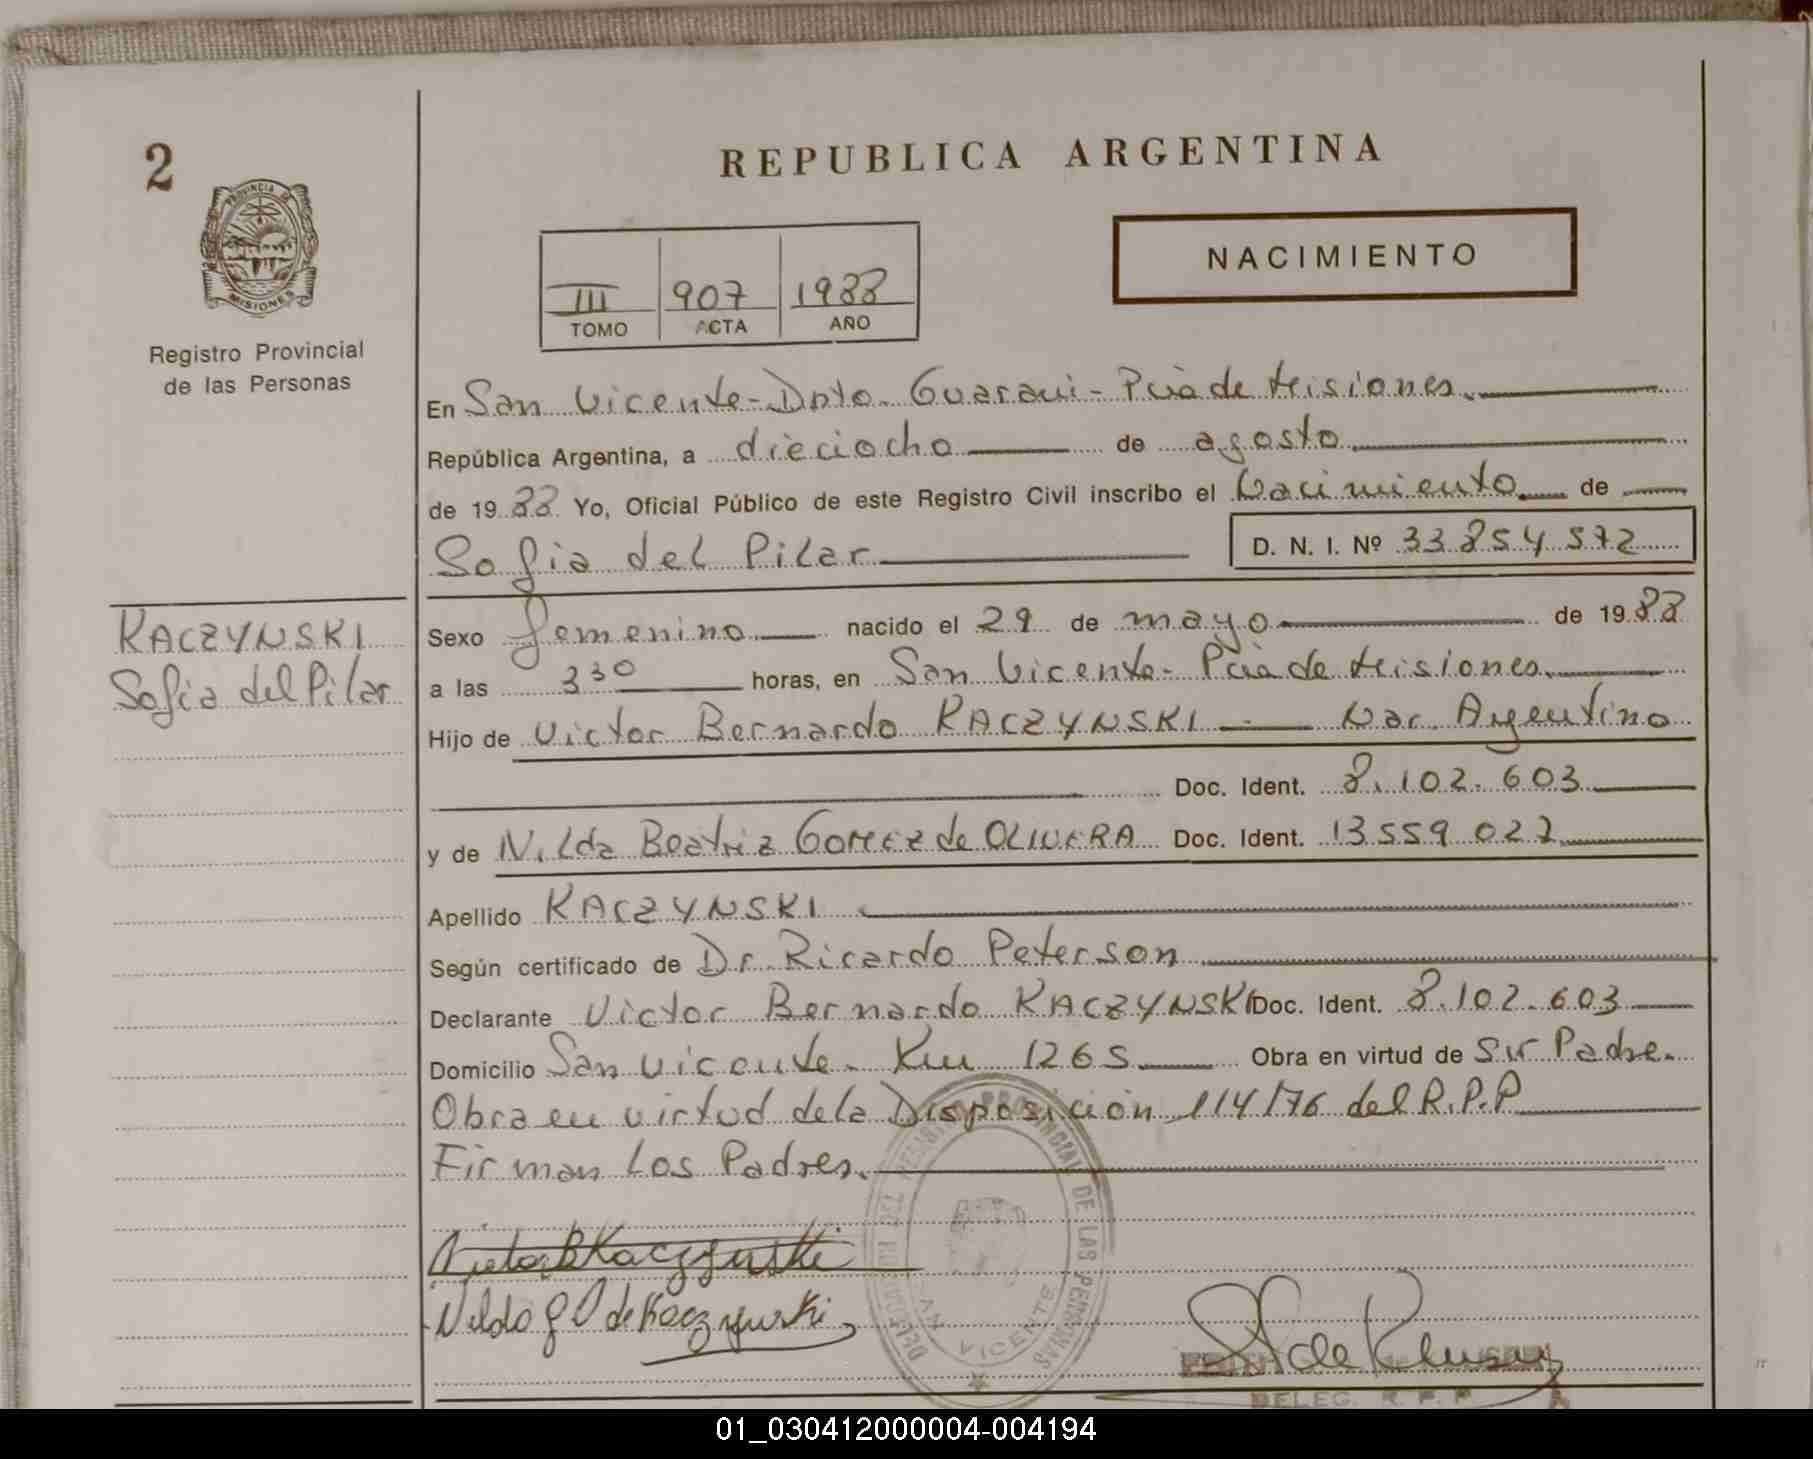 2
PROVINCIA DE
MISIONES
Registro Provincial
de las Personas
KACZYNSKI
Sofia del Pilar
REPUBLICA ARGENTINA
III 907 1988
TOMO ACTA AÑO
NACIMIENTO
En San Vicente - Dpto. Guarani - Pcia de Misiones.
República Argentina, a dieciocho de agosto
de 1988 Yo, Oficial Público de este Registro Civil inscribo el Nacimiento de
Sofia del Pilar D. N. I. Nº 33.854.572
Sexo femenino nacido el 29 de mayo de 1988
a las 3 30 horas, en San Vicente - Pcia de Misiones.
Hijo de Victor Bernardo KACZYNSKI - Nac. Argentino
Doc. Ident. 8.102.603
y de Nilda Beatriz Gomez de OLIVERA Doc. Ident. 13.559.027
Apellido KACZYNSKI
Según certificado de Dr. Ricardo Peterson
Declarante Victor Bernardo KACZYNSKI Doc. Ident. 8.102.603
Domicilio San Vicente - Km 1265 Obra en virtud de Su Padre.
Obra en virtud de la Disposición 114/76 del R.P.P
Firman Los Padres.
Victor B Kaczynski
Nilda G O de Kaczynski
REGISTRO PROVINCIAL DE LAS PERSONAS
SAN VICENTE
DELEG. R. P. P.
01_030412000004-004194